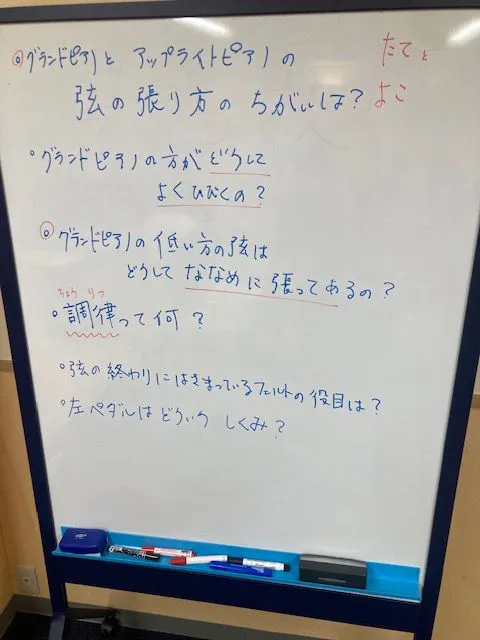 ◎グランドピアノと アップライトピアノの
弦の張り方の ちがいは?
たてと
よこ
・グランドピアノの方が どうして
よくひびくの?
◎グランドピアノの 低い方の弦は
どうして ななめに張ってあるの?
ちょう りつ
・調律って何?
・弦の終わりにはさまっているフェルトの役目は?
・左ペダルはどういう しくみ?